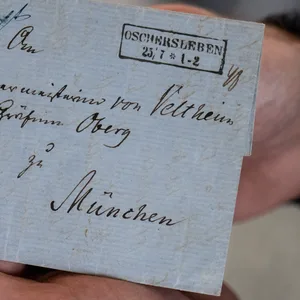 OSCHERSLEBEN
25/7 * 1-2
An
ermeisterin von Veltheim
Gräfinn Oberg
zu
München